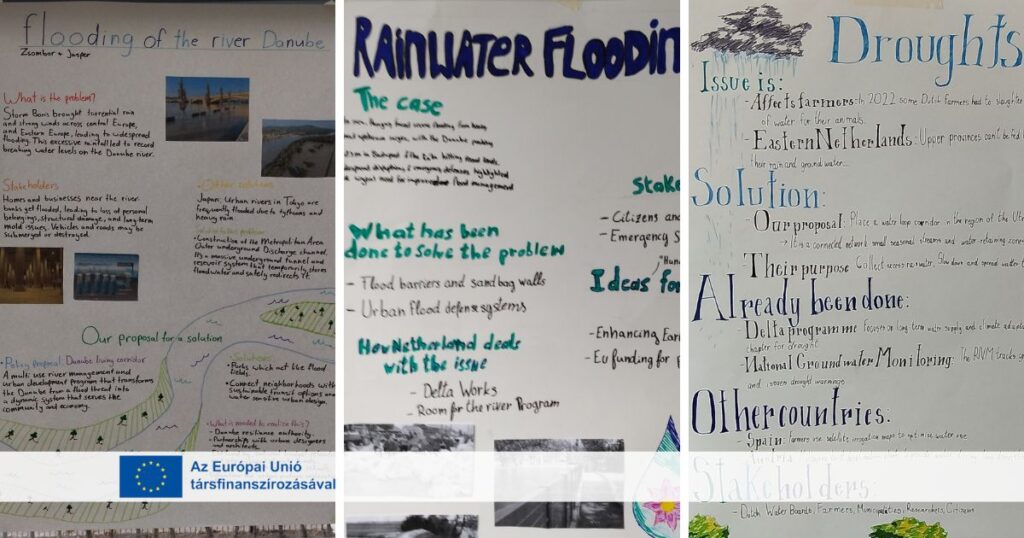 flooding of the river Danube
Zsombor + Jasper
What is the problem?
Storm Boris brought torrential rain
and strong winds across central Europe,
and Eastern Europe, leading to widespread
flooding. This excessive rainfall led to record
breaking water levels on the Danube river.
Stakeholders
Homes and businesses near the river
banks get flooded, leading to loss of personal
belongings, structural damage, and long-term
mold issues. Vehicles and roads may be
submerged or destroyed.
Other solutions
Japan: Urban rivers in Tokyo are
frequently flooded due to typhoons and
heavy rain.
Solution to this problem:
• Construction of the Metropolitan Area
Outer underground Discharge channel.
It's a massive underground tunnel and
system that temporarily stores
floodwater and safely redirects it.
Our proposal for a solution
• Policy proposal: Danube living corridor
A multi use river management and
urban development program that transforms
the Danube from a flood threat into
a dynamic system that serves the
community and economy.
• Solutions:
• Parks which act like flood
fields.
• Connect neighborhoods with
sustainable transit options and
water sensitive urban design.
What is needed to realize this?
- Danube resilience authority
- Partnership with urban designers
and architects
RAINWATER FLOODIN
The case
What has been
done to solve the problem
- Flood barriers and sandbag walls
- Urban flood defense systems
How Netherland deals
with the issue
- Delta Works
- Room for the river Program
Stake
- Citizens and
- Emergency S
"Hun
Ideas for
- Enhancing
- Eu funding for
Droughts
Issue is:
- Affects farmers: In 2022 some Dutch farmers had to slaughter
of water for their animals.
- Eastern Netherlands: Upper provinces can't be fed
their rain and ground water...
Solution:
- Our proposal: Place a water loop corridor in the region of the
→ It is a connected network small seasonal streams and water-retaining
- Their purpose Collect access rainwater, Slow down and spread water
Already been done:
- Delta programme Focuses on long term water supply and climate
chapter for drought.
- National Groundwater Monitoring: The RIVM tracks
and issues drought warnings
Other countries:
- Spain: Farmers use satellite irrigation maps to optimise water use.
Stakeholders:
- Dutch Water Boards, Farmers, Municipalities, Researchers, Citizens
Az Európai Unió
társfinanszírozásával